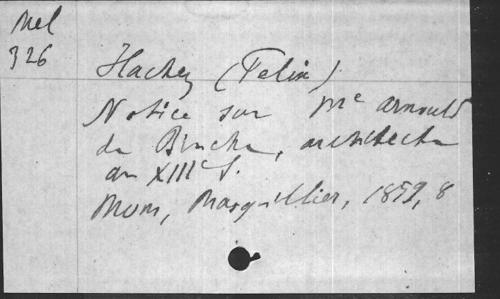 Mel
326
Hachez (Felix)
Notice sur Me arnould
de Binche, architecte
du XIIIe S.
Mons, Masquillier, 1859, 8